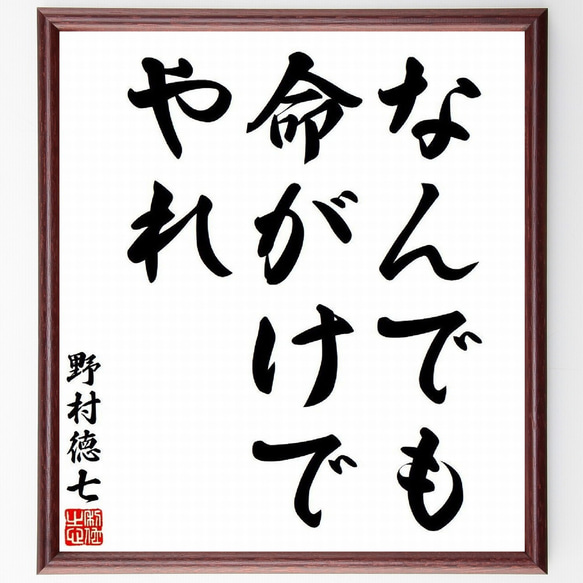 なんでも
命がけで
やれ
野村徳七